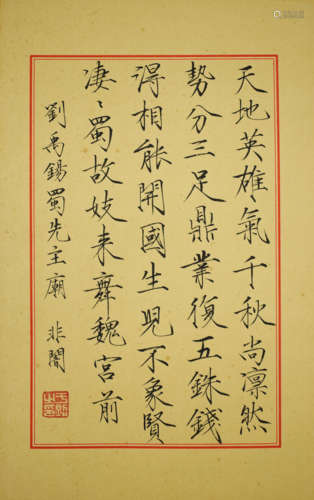 天地英雄氣千秋尚凛然
勢分三足鼎業復五銖錢
得相能開國生児不象賢
凄〻蜀故妓来舞魏宮前
劉禹錫蜀先主廟 非闇